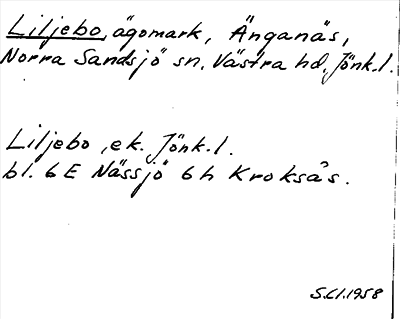 Liljebo, ägomark, Änganäs,
Norra Sandsjö sn. Västra hd. Jönk.l.
Liljebo, ek. Jönk.l.
bl. 6E Nässjö 6h Kroksås.
S.Cl.1958